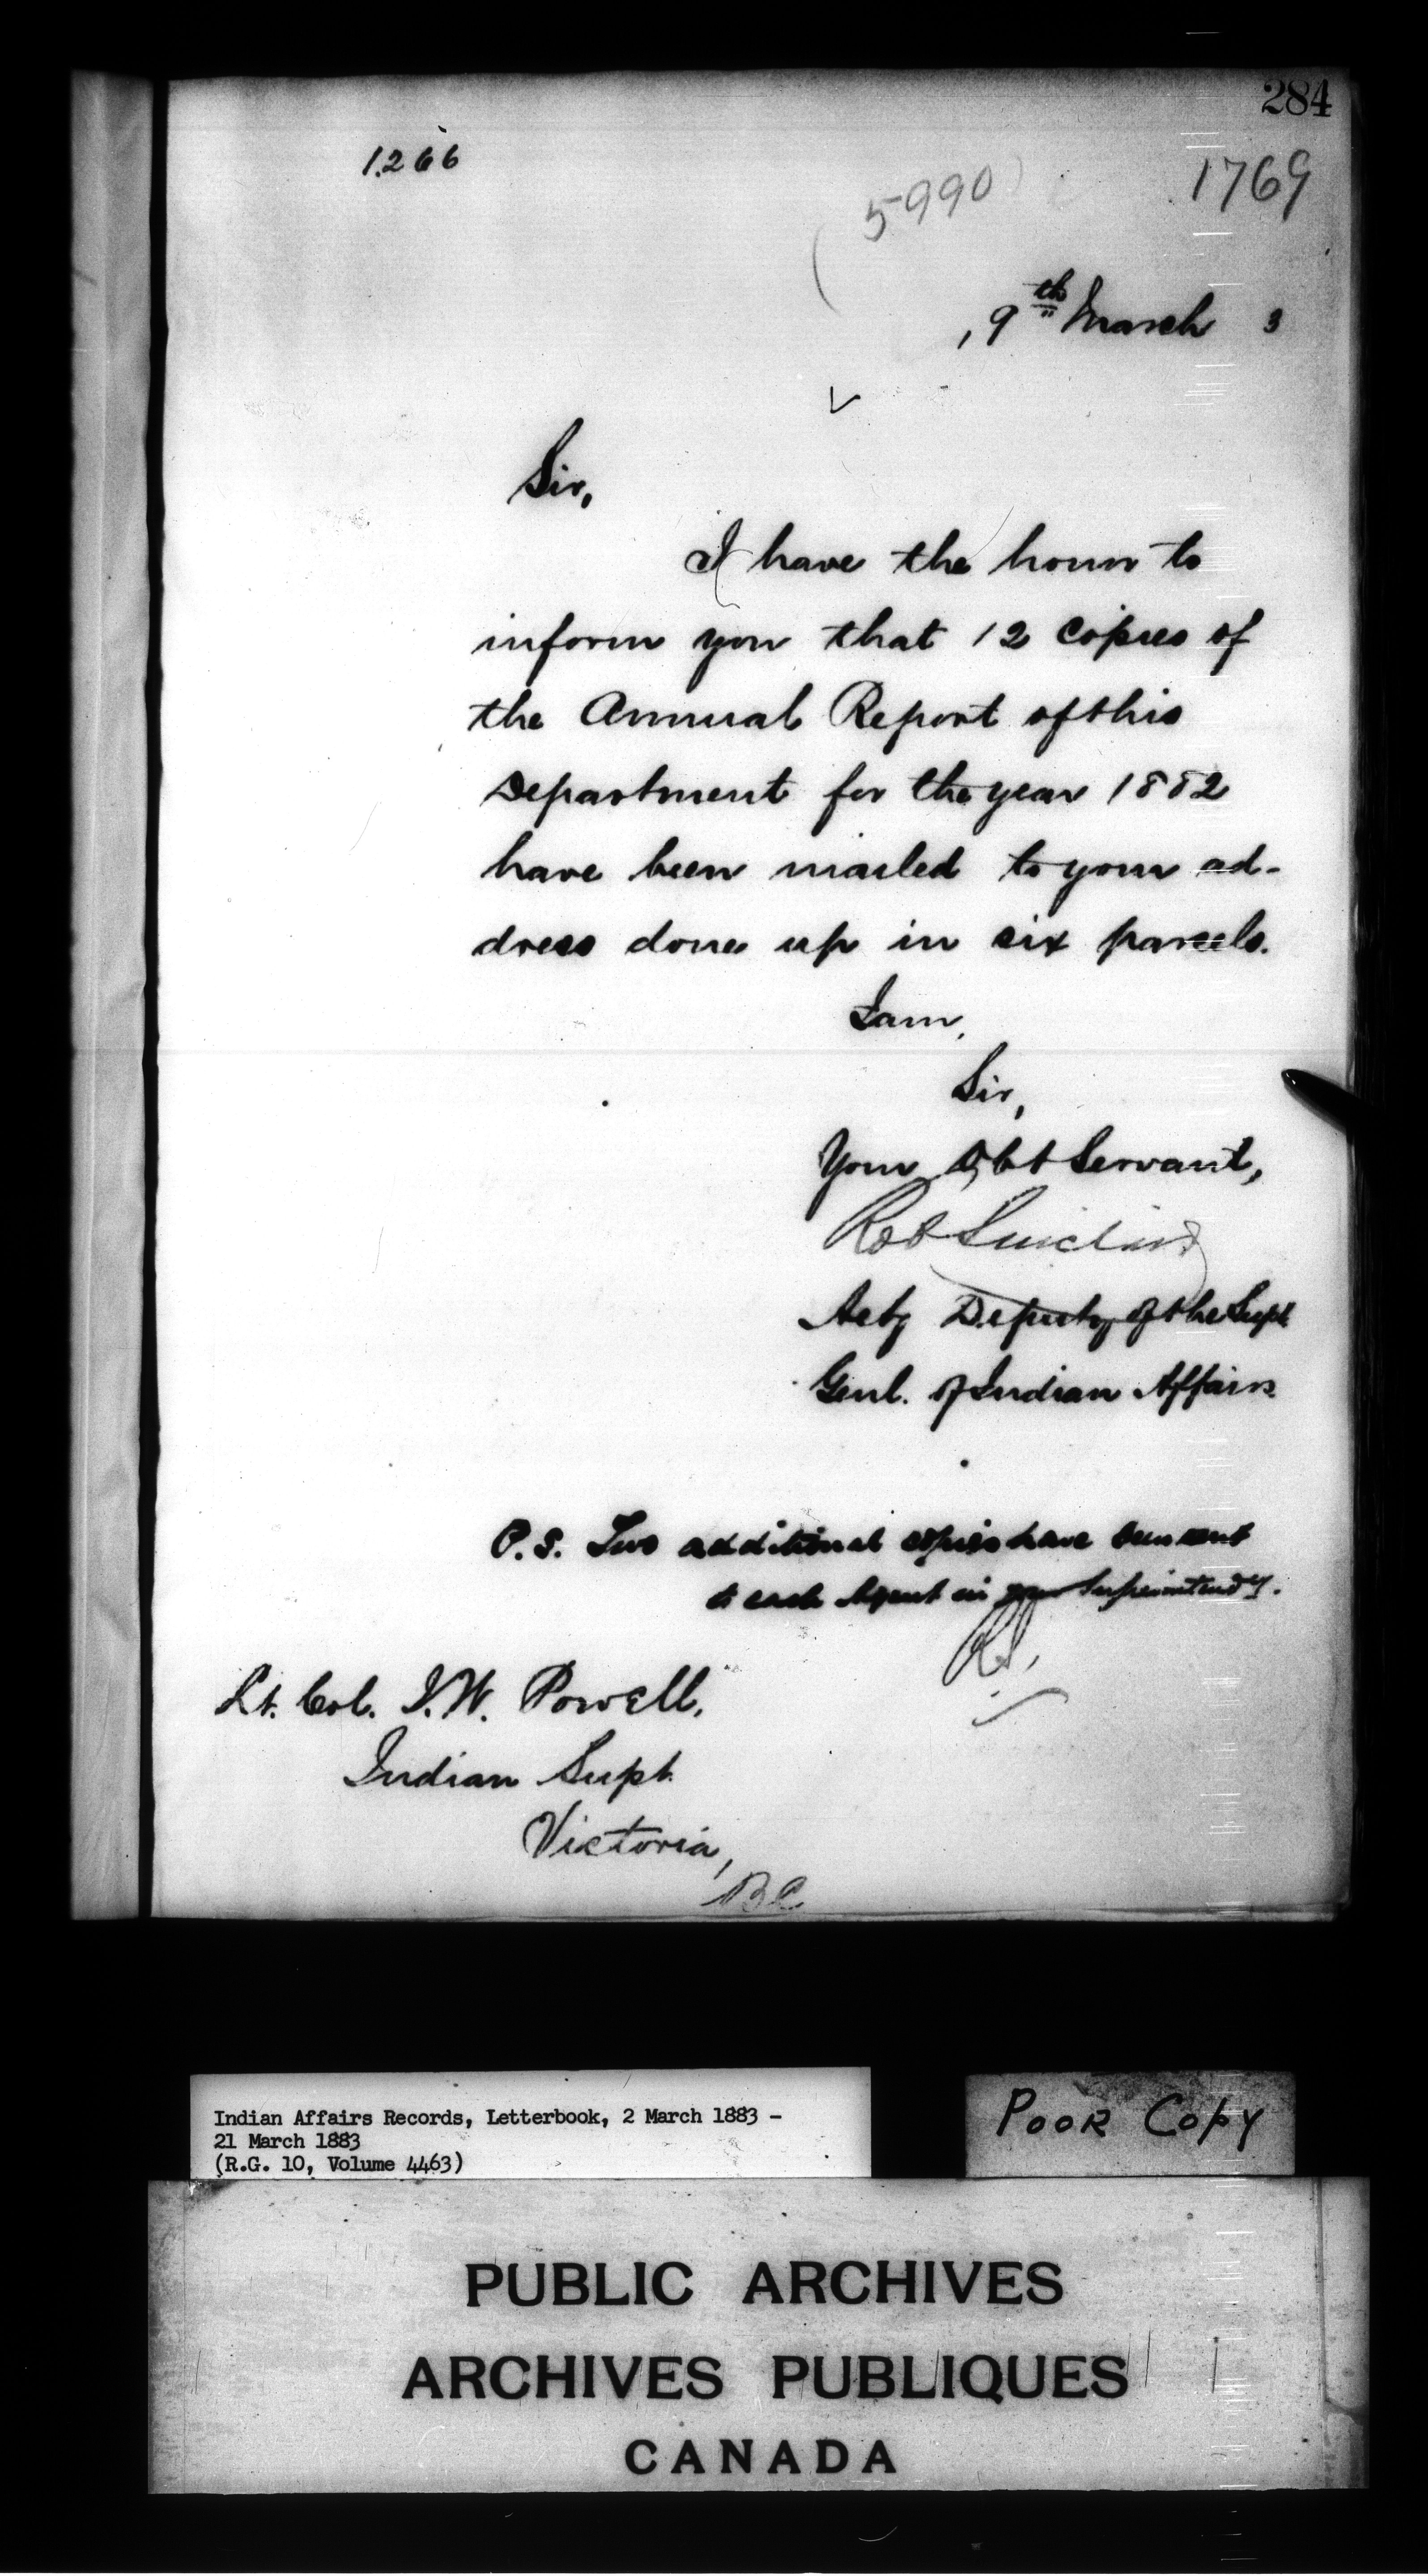 284
1266
(5990)
1769
, 9th March 3
Sir,
I have the honor to
inform you that 12 copies of
the Annual Report of this
Department for the year 1882
have been mailed to your ad-
dress done up in six parcels.
I am,
Sir,
Your Obt Servant,
Rob Sinclair
Actg Deputy of the Supt
Genl. of Indian Affairs
P.S. Two additional copies have been sent
to each Agent in your Superintendy.
RS.
Lt. Col. I.W. Powell,
Indian Supt.
Victoria,
BC
Indian Affairs Records, Letterbook, 2 March 1883 -
21 March 1883
(R.G. 10, Volume 4463)
POOR COPY
PUBLIC ARCHIVES
ARCHIVES PUBLIQUES
CANADA